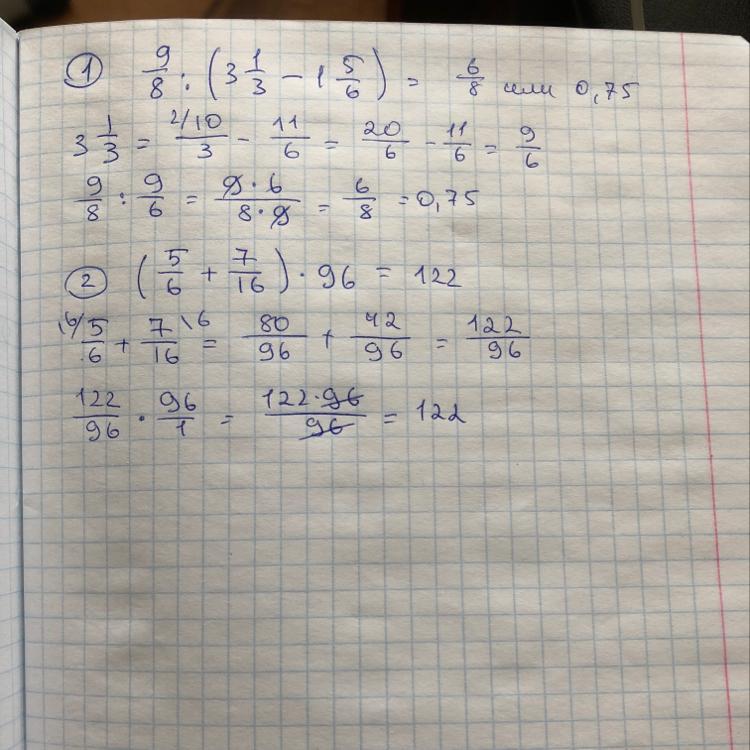 ① 9/8 : (3 1/3 − 1 5/6) = 6/8 или 0,75
3 1/3 = 2/ 10/3 − 11/6 = 20/6 − 11/6 = 9/6
9/8 : 9/6 = 9·6/8·9 = 6/8 = 0,75
② (5/6 + 7/16) · 96 = 122
16/ 5/6 + 7/16 \6 = 80/96 + 42/96 = 122/96
122/96 · 96/1 = 122·96/96 = 122